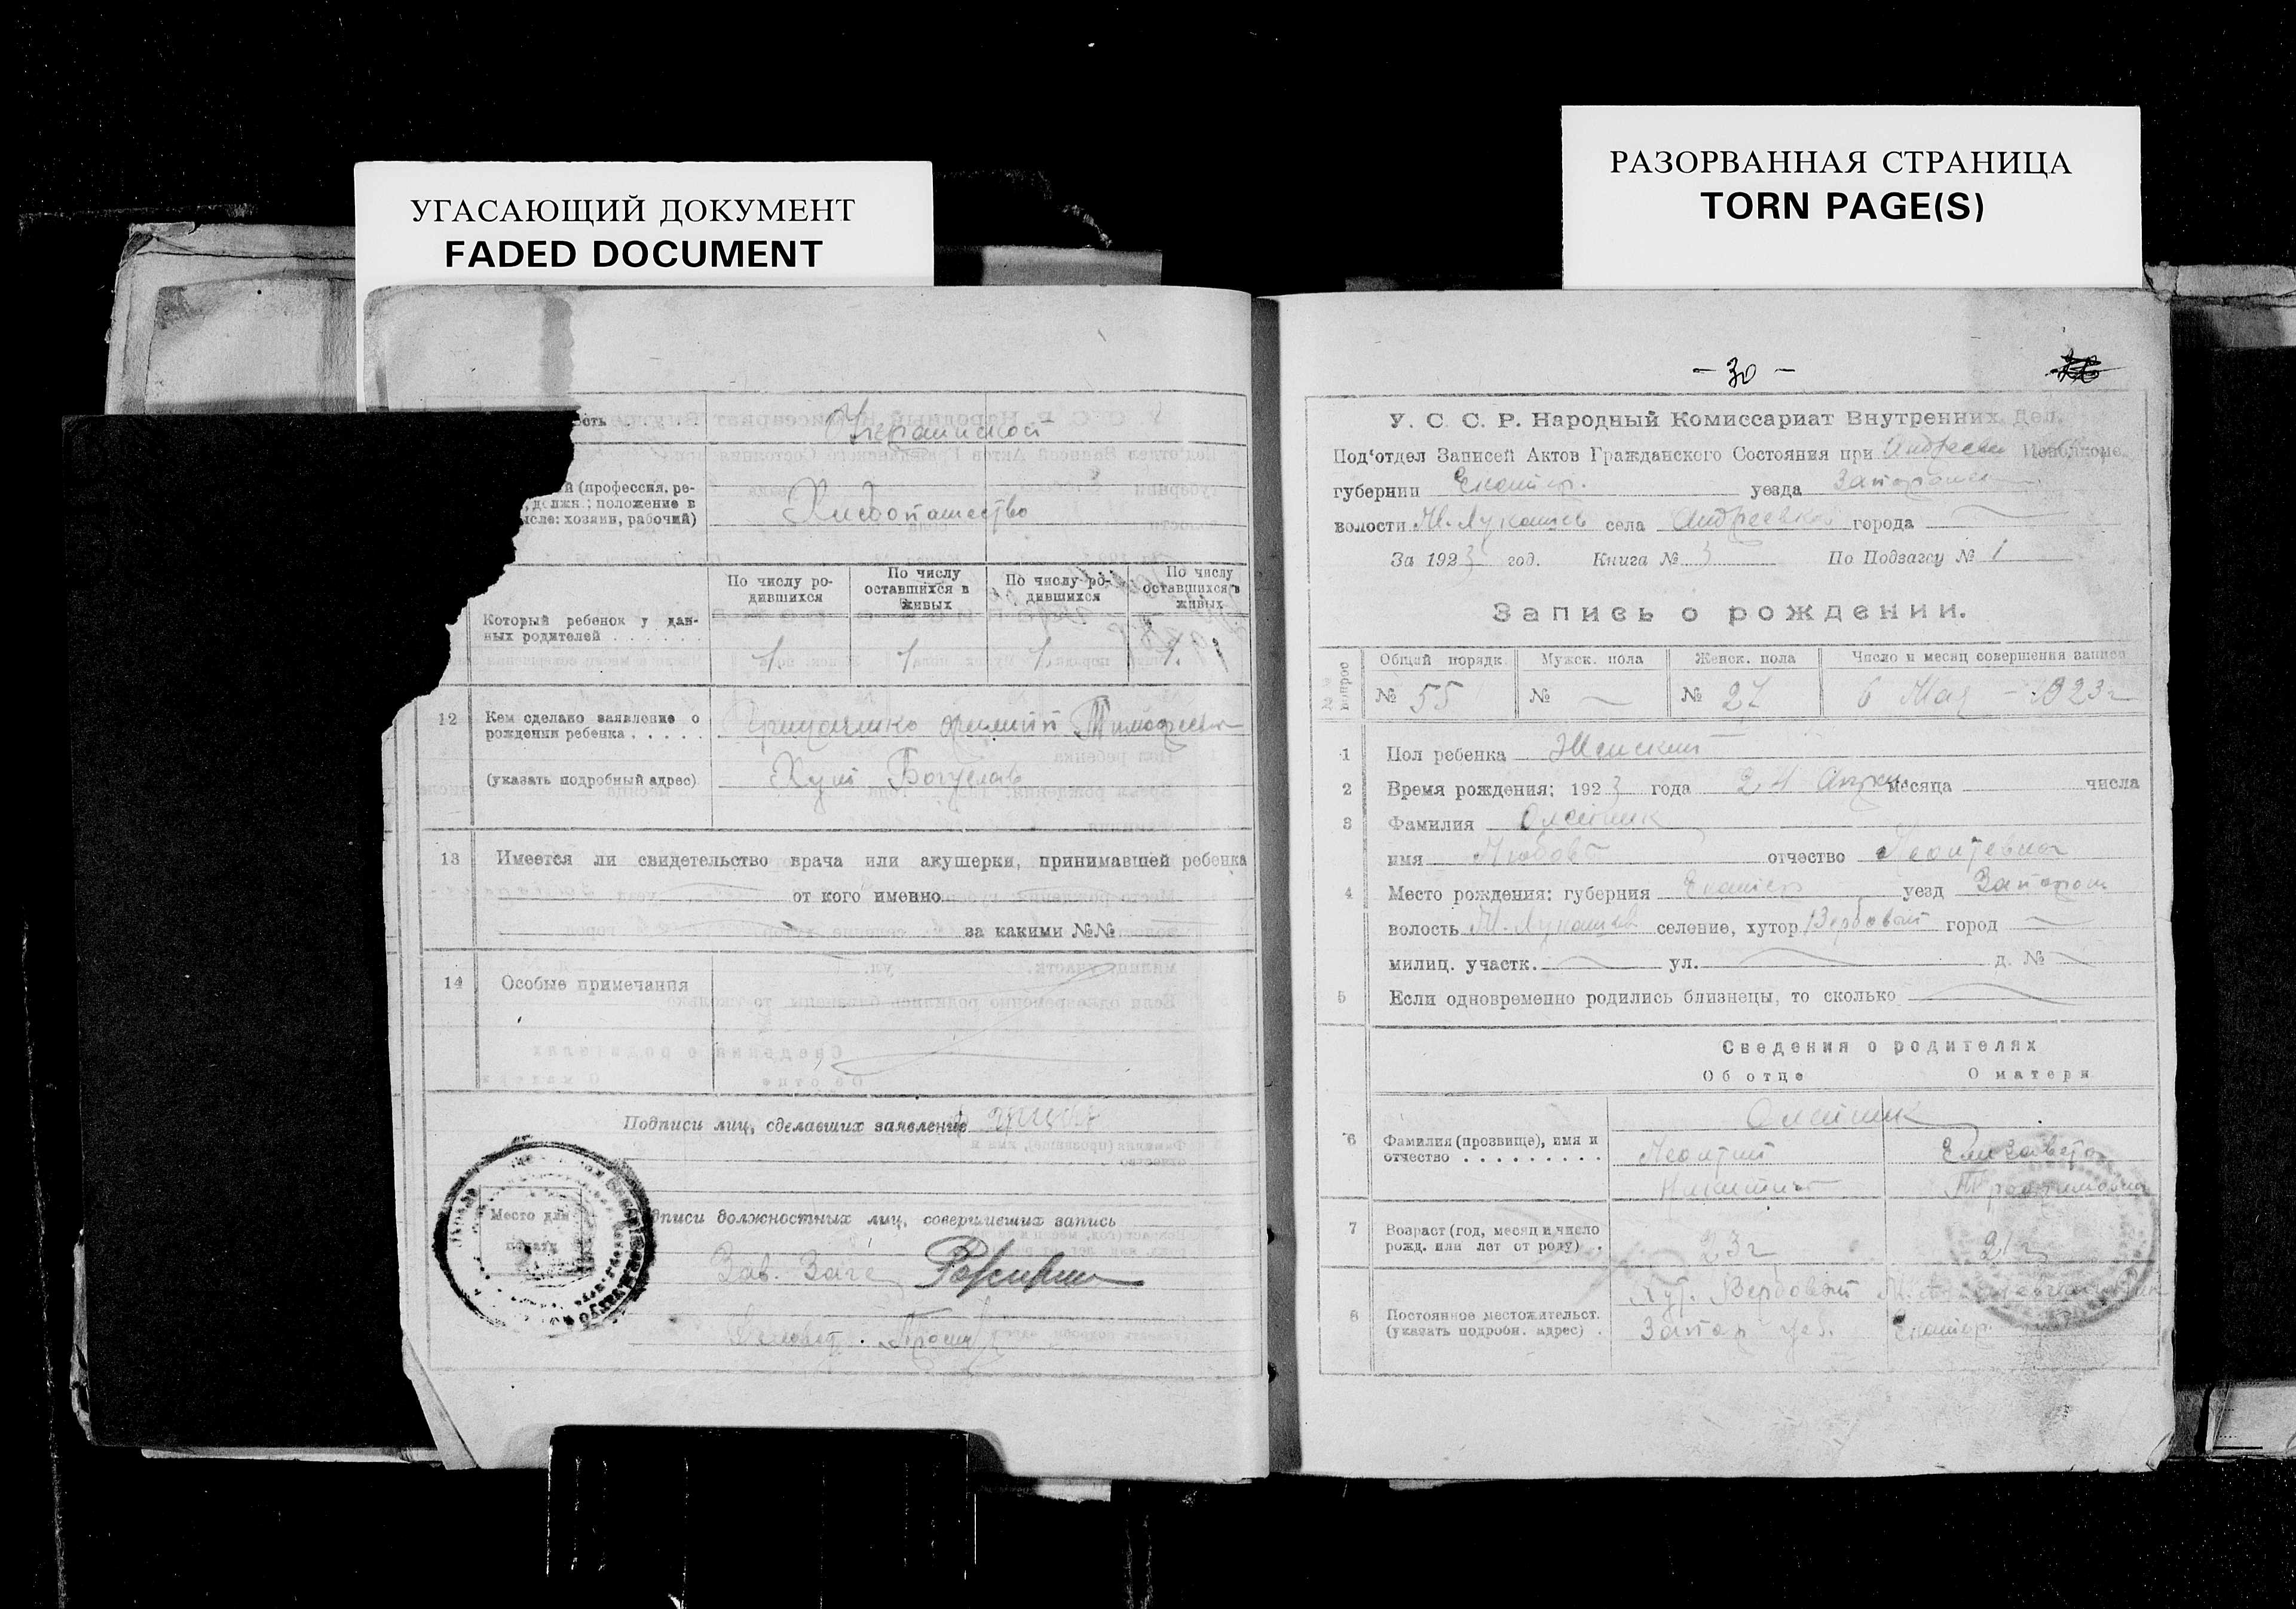 УГАСАЮЩИЙ ДОКУМЕНТ
FADED DOCUMENT
РАЗОРВАННАЯ СТРАНИЦА
TORN PAGE(S)
ость
Украинской
й (профессия, ре-
, должн.; положение в
ысле: хозяин, рабочий)
Хлебопашество
По числу ро-
дившихся
По числу
оставшихся в
живых
По числу ро-
дившихся
По числу
оставшихся в
живых
Который ребенок у дан-
ных родителей . . . . . .
1. 1. 1. 1.
12 Кем сделано заявление о
рождении ребенка . . . . .
(указать подробный адрес)
Хут Богуслав
13 Имеется ли свидетельство врача или акушерки, принимавшей ребенка
от кого именно
за какими №№
14 Особые примечания
Подписи лиц, сделавших заявление
Место для
печати
дписи должностных лиц, совершивших запись
Зав. Загс
- 30 -
У. С. С. Р. Народный Комиссариат Внутренних Дел.
Под'отдел Записей Актов Гражданского Состояния при Андреев
губернии Екатер. уезда Запорож
волости М.-Лукашев села Андреевка города
За 1923 год. Книга № 3 По Подзагсу № 1
Запись о рождении.
Вопрос
Общий порядк. Мужск. пола Женск. пола Число и месяц совершения записи
№ 55 № № 27 6 Мая - 1923 г
1 Пол ребенка Женский
2 Время рождения: 1923 года 24 Апрел месяца числа
3 Фамилия Олейник
имя Любовь отчество Леонтевна
4 Место рождения: губерния Екатер уезд Запорож
волость М.-Лукашев селение, хутор Вербовый город
милиц. участк. ул. д. №
5 Если одновременно родились близнецы, то сколько
Сведения о родителях
Об отце О матери
Олейник
6 Фамилия (прозвище), имя и
отчество . . . . . . . . .
Леонтий Елизавета
Никитич Трофимовна
7 Возраст (год, месяц и число
рожд. или лет от роду) .
23 г 21 г
8 Постоянное местожительст.
(указать подробн. адрес) .
Хут. Вербовый
Запор уез. Екатер.